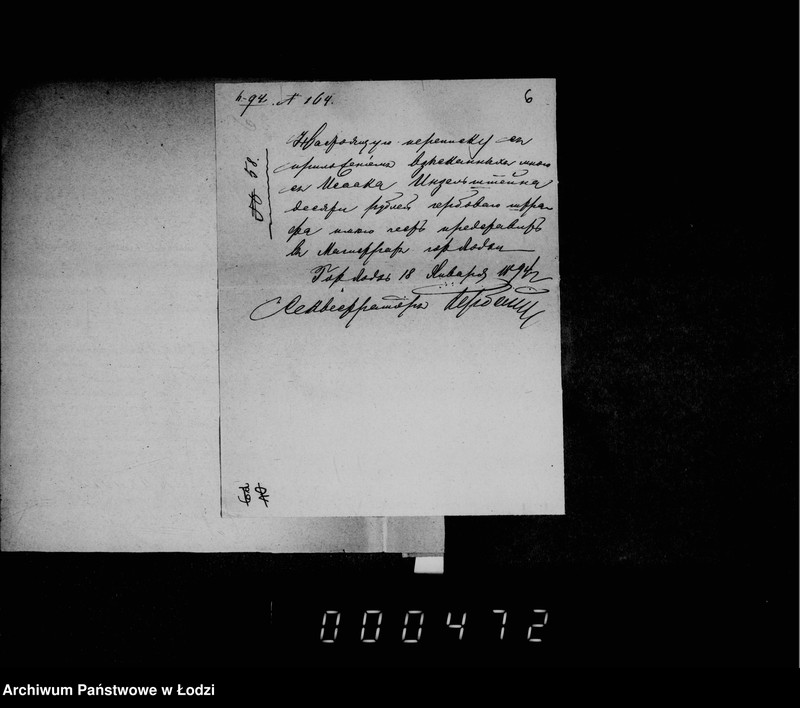 94. № 164.
6
№ 58.
Настоящую переписку съ
приложеніемъ взысканныхъ мною
съ Исаака Индельштейна
десяти рублей гербоваго штра-
фа имѣю честь представить
въ Магистратъ гор. Лодзи
Гор. Лодзь 18 Января 1894 г.
Секвестраторъ
000472
Archiwum Państwowe w Łodzi